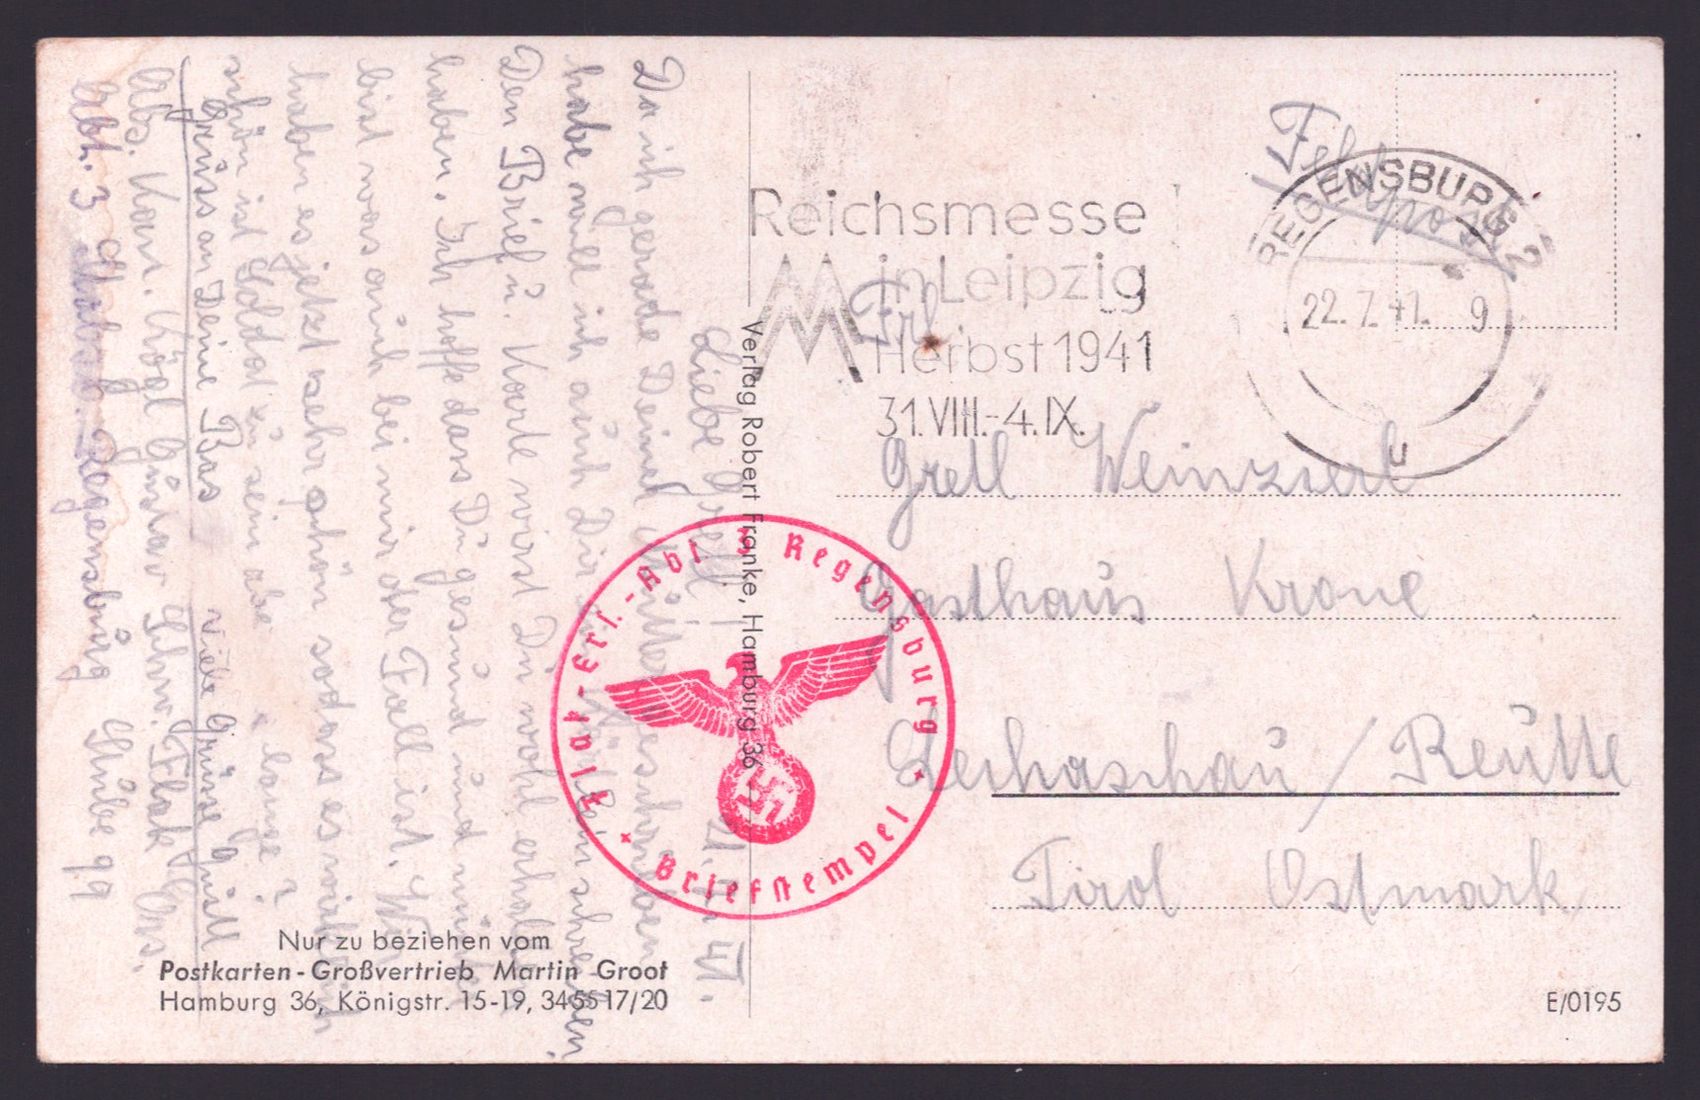 Feldpost
REGENSBURG 2
22.7.41. 9
u
Reichsmesse
in Leipzig
Herbst 1941
31.VIII.-4.IX.
M
Frl
Gretl Weinzierl
Gasthaus Krone
Lechaschau / Reutte
Tirol Ostmark
Verlag Robert Franke, Hamburg 36
Flak-Ers.-Abt. 3 Regensburg
Briefstempel
21.7.41.
Liebe Gretl
Da ich gerade Deiner geschrieben
habe will ich auch Dir schreiben.
Den Brief u. Karte wirst Du wohl erhalten
haben. Ich hoffe dass Du gesund und
bist was auch bei mir der Fall ist. Wir
haben es jetzt sehr schön sodass es wirklich
schön ist Soldat zu sein aber lange?
Gruss an Deine Bas viele Grüsse Gustl
Abs. Kan. Kögl Gustav Schw. Flak Ers.
Abt. 3 Regensburg Stube 99
Nur zu beziehen vom
Postkarten-Großvertrieb Martin Groot
Hamburg 36, Königstr. 15-19, 34 55 17/20
E/0195